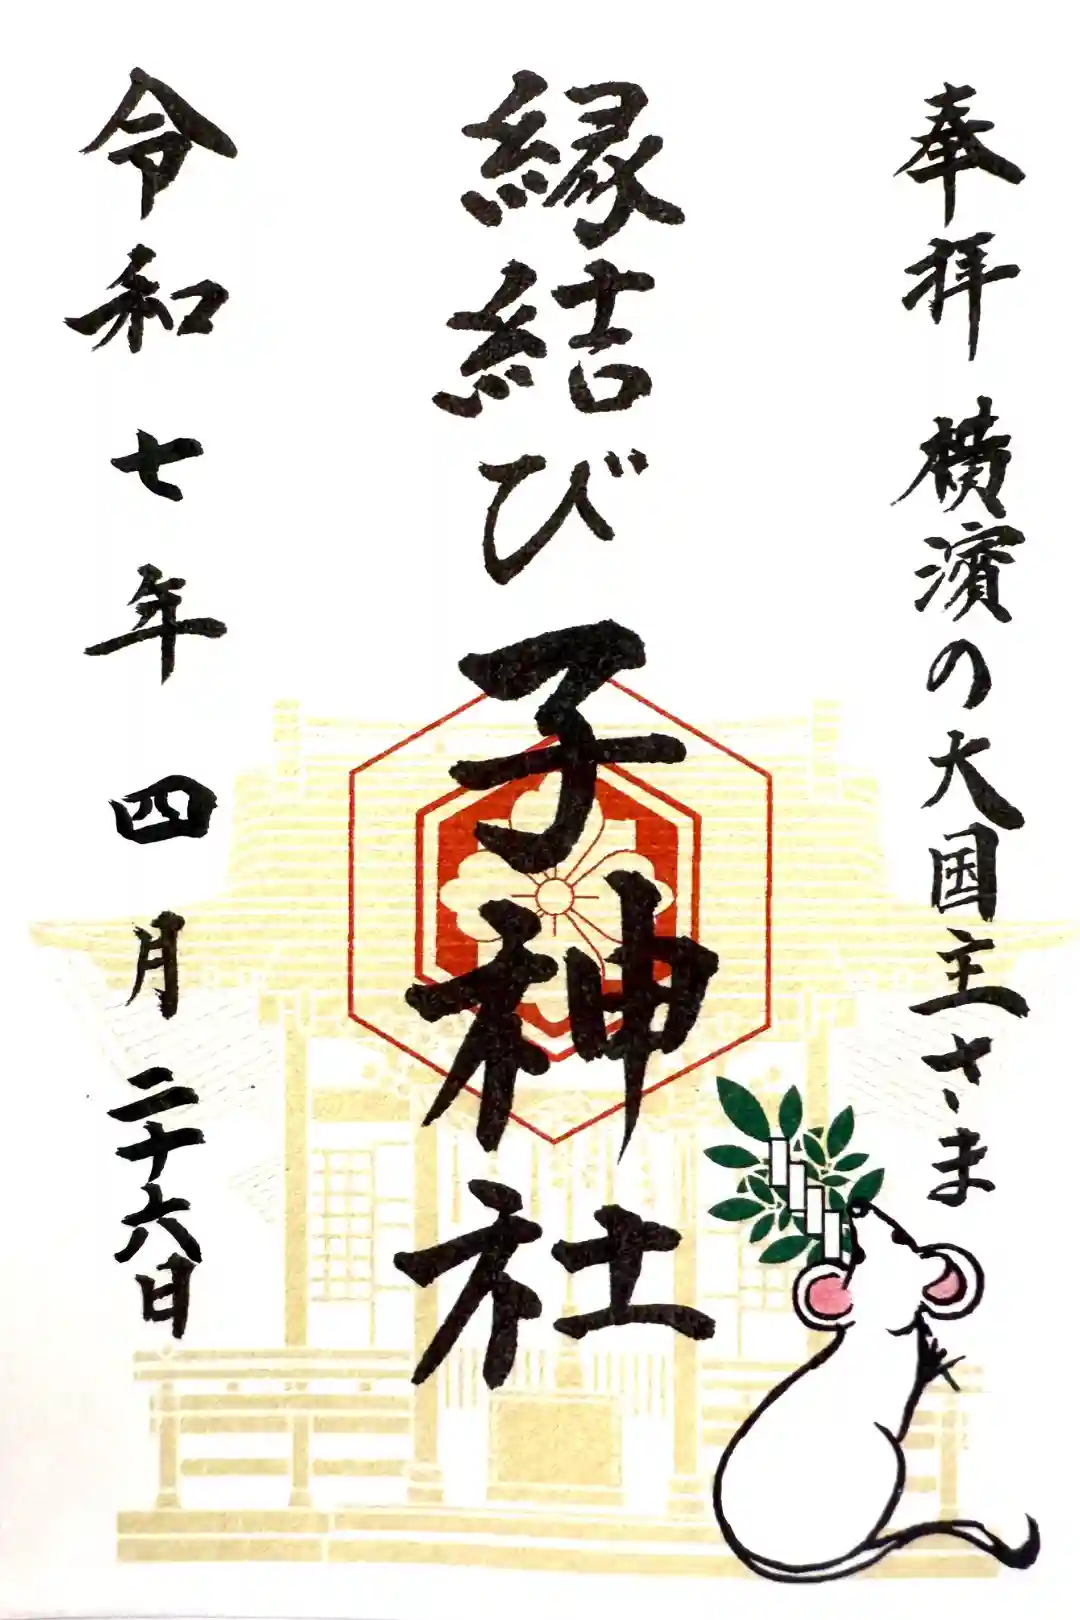 奉拝 横濱の大国主さゝま
縁結び 子神社
令和七年四月二十六日